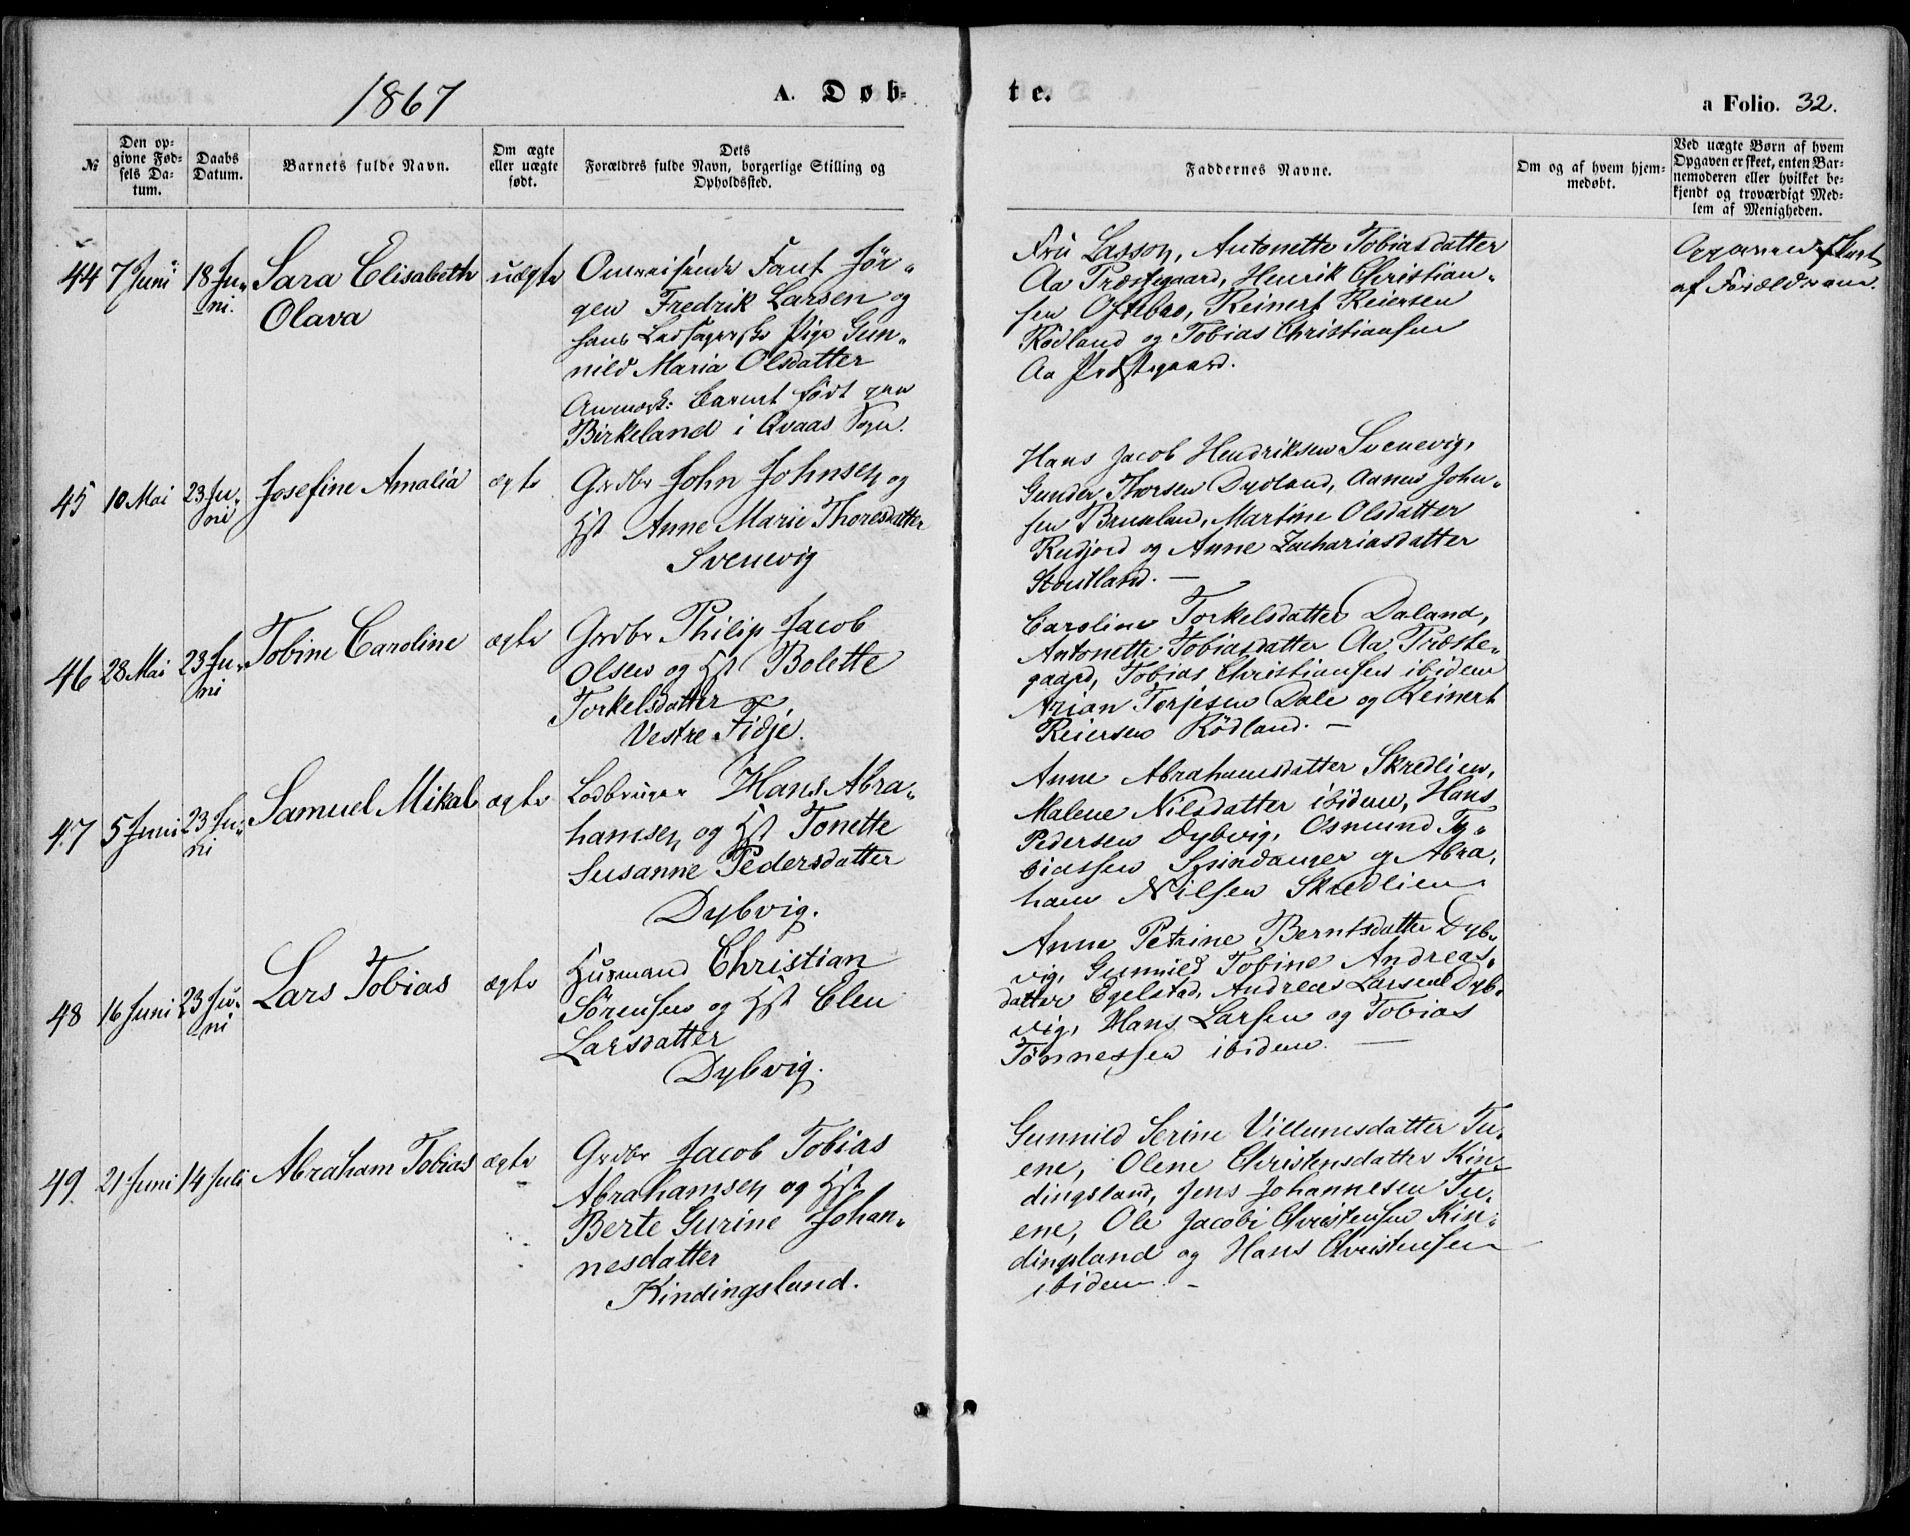 1867
A. Døb-
te.
a Folio. 32.
№
Den op-
givne Fød-
sels Da-
tum.
Daabs
Datum.
Barnets fulde Navn.
Om ægte
eller uægte
født.
Dets
Forældres fulde Navn, borgerlige Stilling og
Opholdssted.
Faddernes Navne.
Om og af hvem hjem-
medøbt.
Ved uægte Børn af hvem
Opgaven er skeet, enten Bar-
nemoderen eller hvilket be-
kjendt og troværdigt Med-
lem af Menigheden.
44
7 Juni
18 Ju-
ni.
Sara Elisabeth
Olava
uægte
Omreisende Fant Jør-
gen Fredrik Larsen og
hans Ledsagerske Pige Gun-
nild Maria Olsdatter
Anmærk: Barnet født paa
Birkeland i Qvaas Sogn.
Fru Lasson, Antonette Tobiasdatter
Aa Præstegaard, Henrik Christian-
sen Oftebro, Reinert Reiersen
Rødland og Tobias Christiansen
Aa Præstegaard.
Opgaven skeet
af Forældrene.
45
10 Mai
23 Ju-
ni
Josefine Amalia
ægte
Grdbr John Johnsen og
Hst Anne Marie Thoresdatter
Svenevig
Hans Jacob Hendriksen Svenevig,
Gunder Thorsen Dydland, Aanen John-
sen Martine Olsdatter
Rudjord og Anne Zachariasdatter
46
28 Mai
23 Ju-
ni
Tobine Caroline
ægte
Grdbr Philip Jacob
Olsen og Hst Bolette
Torkelsdatter
Vestre Fidje.
Caroline Torkelsdatter Daland,
Antonette Tobiasdatter Aa Præste-
gaard, Tobias Christiansen ibidem
Arian Torjesen Dale og Reinert
Reiersen Rødland. —
47
5 Juni
23 Ju-
ni
Samuel Mikal
ægte
Lodbruger Hans Abra-
hamsen og Hst Tonette
Susanne Pedersdatter
Dybvig.
Anne Abrahamsdatter Skredlien,
Malene Nilsdatter ibidem, Hans
Pedersen Dybvig, Osmund To-
biassen Spindanger og Abra-
ham Nilsen Skredlien
48
16 Juni
23 Ju-
ni
Lars Tobias
ægte
Husmand Christian
Sørensen og Hst Elen
Larsdatter
Dybvig.
Anne Petrine Berntsdatter Dyb-
vig, Gunnild Tobine Andreas-
datter Egelstad, Andreas Larsen Dyb-
vig, Hans Larsen og Tobias
Tønnessen ibidem. —
49.
21 Juni
14 Juli
Abraham Tobias
ægte
Grdbr Jacob Tobias
Abrahamsen og Hst
Berte Gurine Johan-
nesdatter
Kindingsland.
Gunnild Serine Villumsdatter Tu-
ene, Olene Christensdatter Kin-
dingsland, Jens Johannesen Tu-
ene, Ole Jacobi Christensen Kin-
dingsland og Hans Christensen
ibidem. —